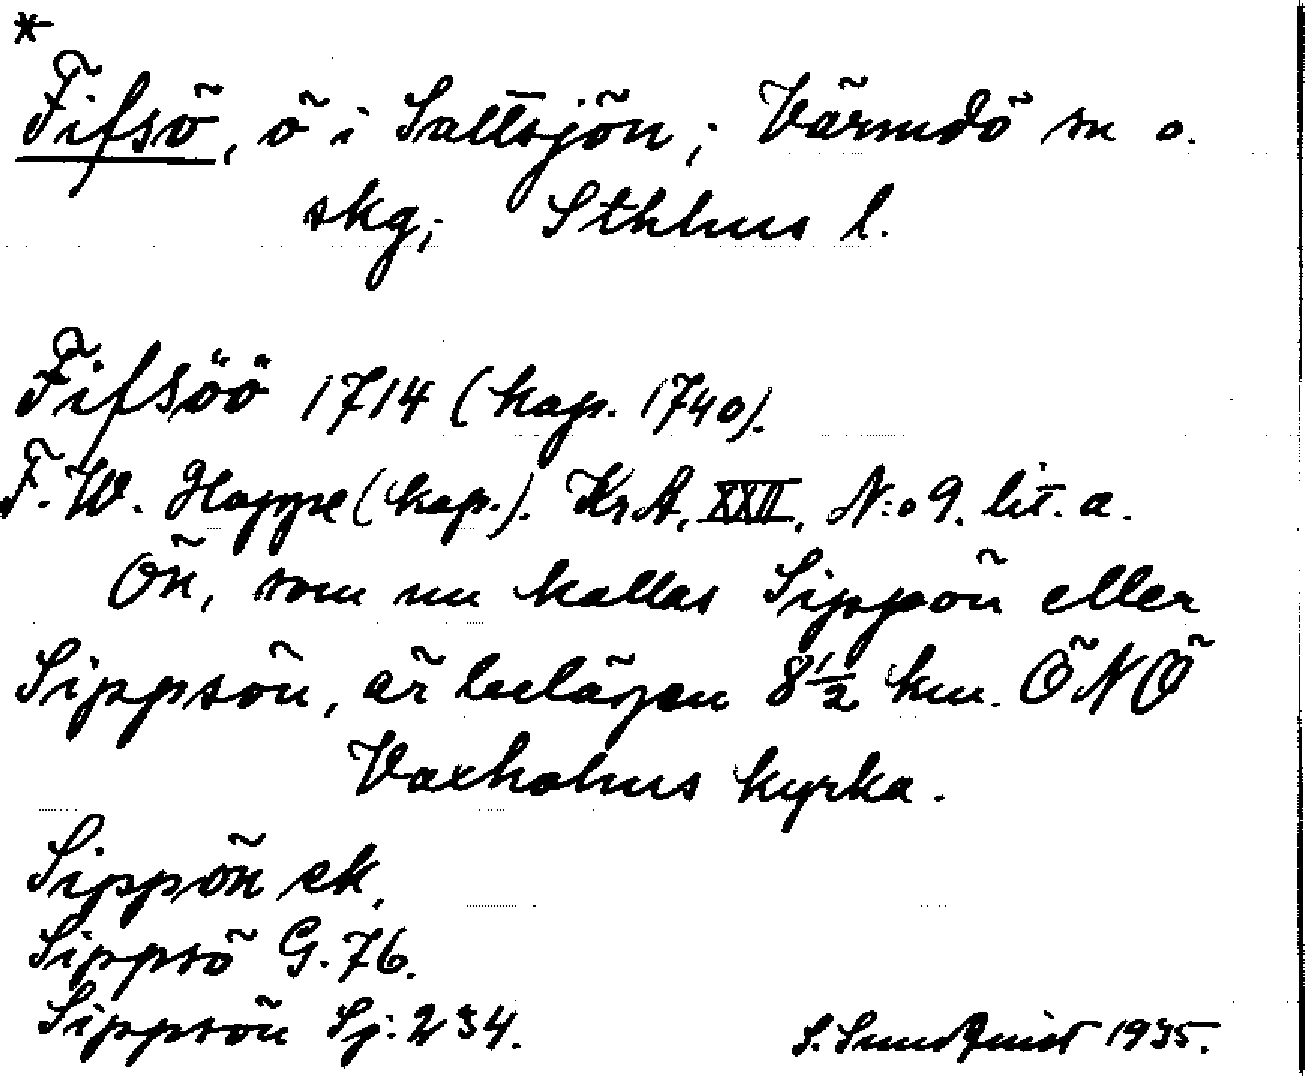 *
Fifsö, ö i Saltsjön; Värmdö sn o.
skg; Sthlms l.
Fifsöö 1714 (kap. 1740).
F. W. Hoppe (kap.). KrA, XXII, N:o 9. lit. a.
Ön, som nu kallas Sippön eller
Sippsön, är belägen 8 1/2 km. ÖNÖ
Vaxholms kyrka.
Sippön ek.
Sippsö G. 76.
Sippsön Sj: 234.
S. Sundquist 1935.